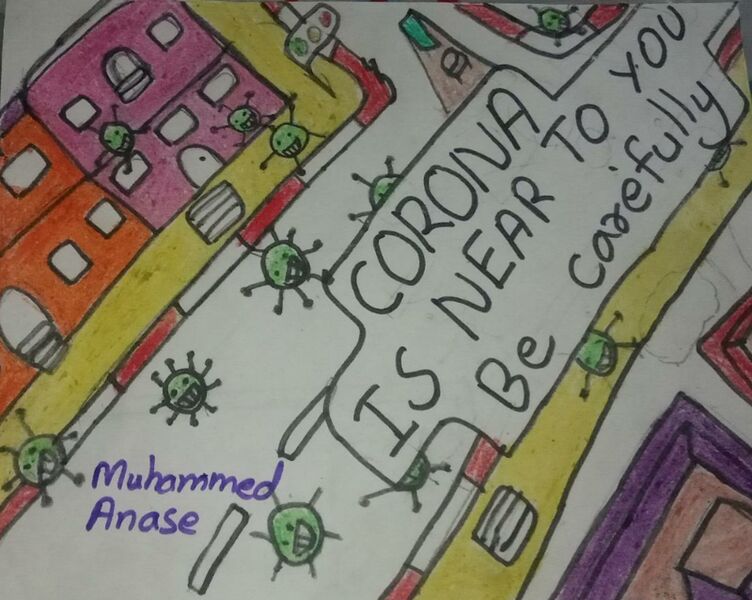 CORONA
IS NEAR TO YOU
Be carefully
Muhammed
Anase